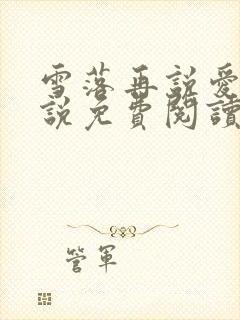 雪落再說愛
說免費閱讀
管軍